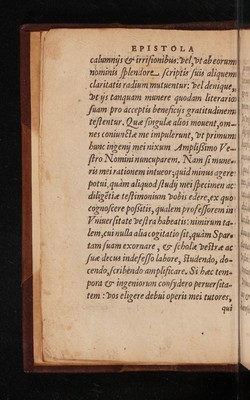 EPISTOLA
calumnijs & irrisionibus: vel, vt ab eorum
nominis splendore scriptis suis aliquem
claritatis radium mutuentur: vel denique,
vt ijs tanquam munere quodam literario
suam pro acceptis beneficijs gratitudinem
testentur. Quæ singulæ alios mouent, om-
nes coniunctæ me impulerunt, vt primum
hunc ingenij mei nixum Amplissimo Ve-
stro Nomini nuncuparem. Nam si mune-
ris mei rationem intueor, quid minus agere
potui, quàm aliquod studij mei specimen ac
diligẽtiæ testimonium vobis edere, ex quo
cognoscere possitis, qualem professorem in
Vniuersitate vestra habeatis: nimirum ta-
lem, cui nulla alia cogitatio sit, quàm Spar-
tam suam exornare, & scholæ vestræ ac
suæ decus indefesso labore, studendo, do-
cendo, scribendo amplificare. Si hæc tem-
pora & ingeniorum consydero peruersita-
tem: vos eligere debui operis mei tutores,
qui